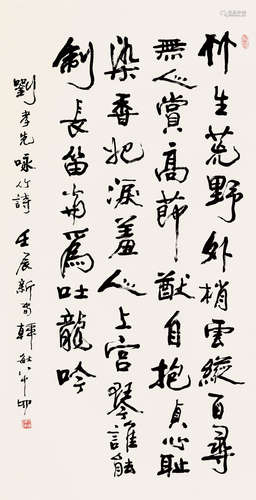 竹生荒野外梢雲縱百尋
無人賞高節猷自抱貞心恥
染香妃淚羞入上宮琴誰能
制長笛當爲吐龍吟
劉孝先詠竹詩 壬辰新 韓敏